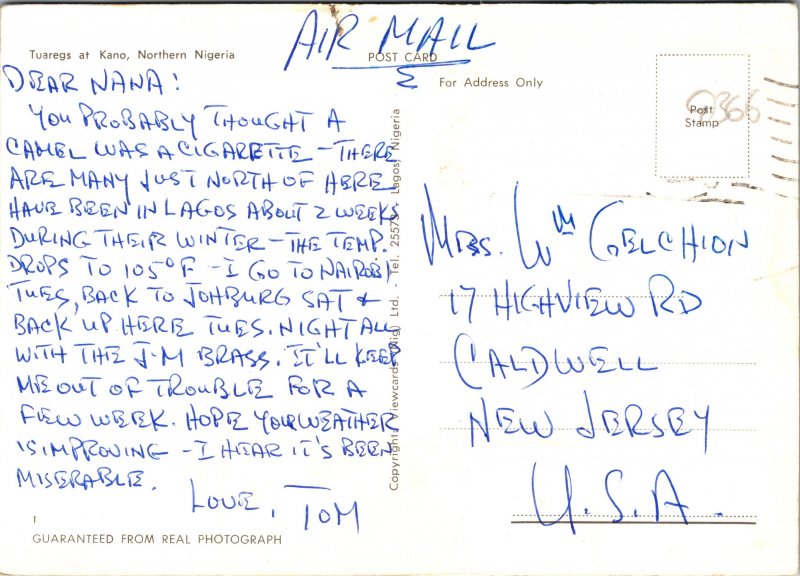 AIR MAIL
Tuaregs at Kano, Northern Nigeria
POST CARD
For Address Only
Post
Stamp
9366
DEAR NANA!
YOU PROBABLY THOUGHT A
CAMEL WAS A CIGARETTE - THERE
ARE MANY JUST NORTH OF HERE
HAVE BEEN IN LAGOS ABOUT 2 WEEKS
DURING THEIR WINTER - THE TEMP.
DROPS TO 105°F - I GO TO NAIROBI
TUES, BACK TO JOHBURG SAT &
BACK UP HERE TUES. NIGHT ALL
WITH THE J-M BRASS. IT'LL KEEP
ME OUT OF TROUBLE FOR A
FEW WEEK. HOPE YOUR WEATHER
IS IMPROVING - I HEAR IT'S BEEN
MISERABLE.
LOVE, TOM
Copyright: Viewcards (Nig) Ltd. - Tel. 25575 Lagos, Nigeria
MRS. Wm GELCHION
17 HIGHVIEW RD
CALDWELL
NEW JERSEY
U.S.A.
1
GUARANTEED FROM REAL PHOTOGRAPH